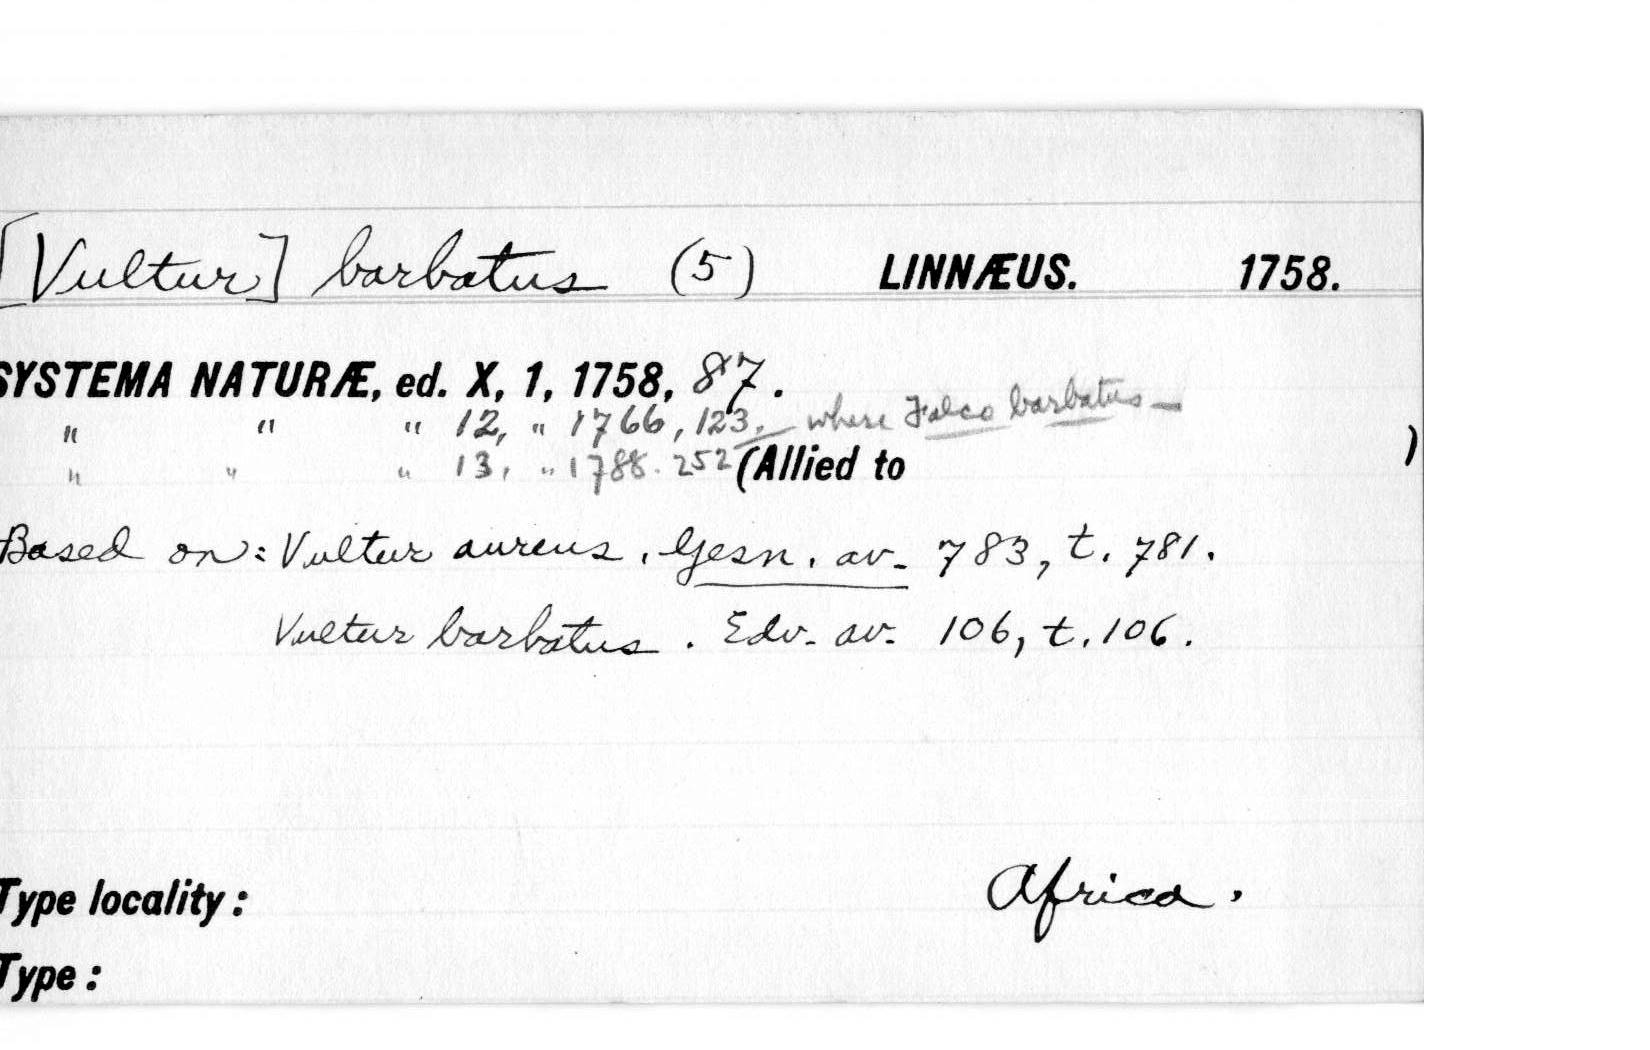 [Vultur] barbatus (5) LINNÆUS. 1758.
SYSTEMA NATURÆ, ed. X, 1, 1758, 87.
" " " 12, " 1766, 123, where Falco barbatus—
" " " 13, " 1788. 252 (Allied to )
Based on: Vultur aureus. Gesn. av. 783, t. 781.
Vultur barbatus. Edv. av. 106, t. 106.
Type locality: Africa.
Type: